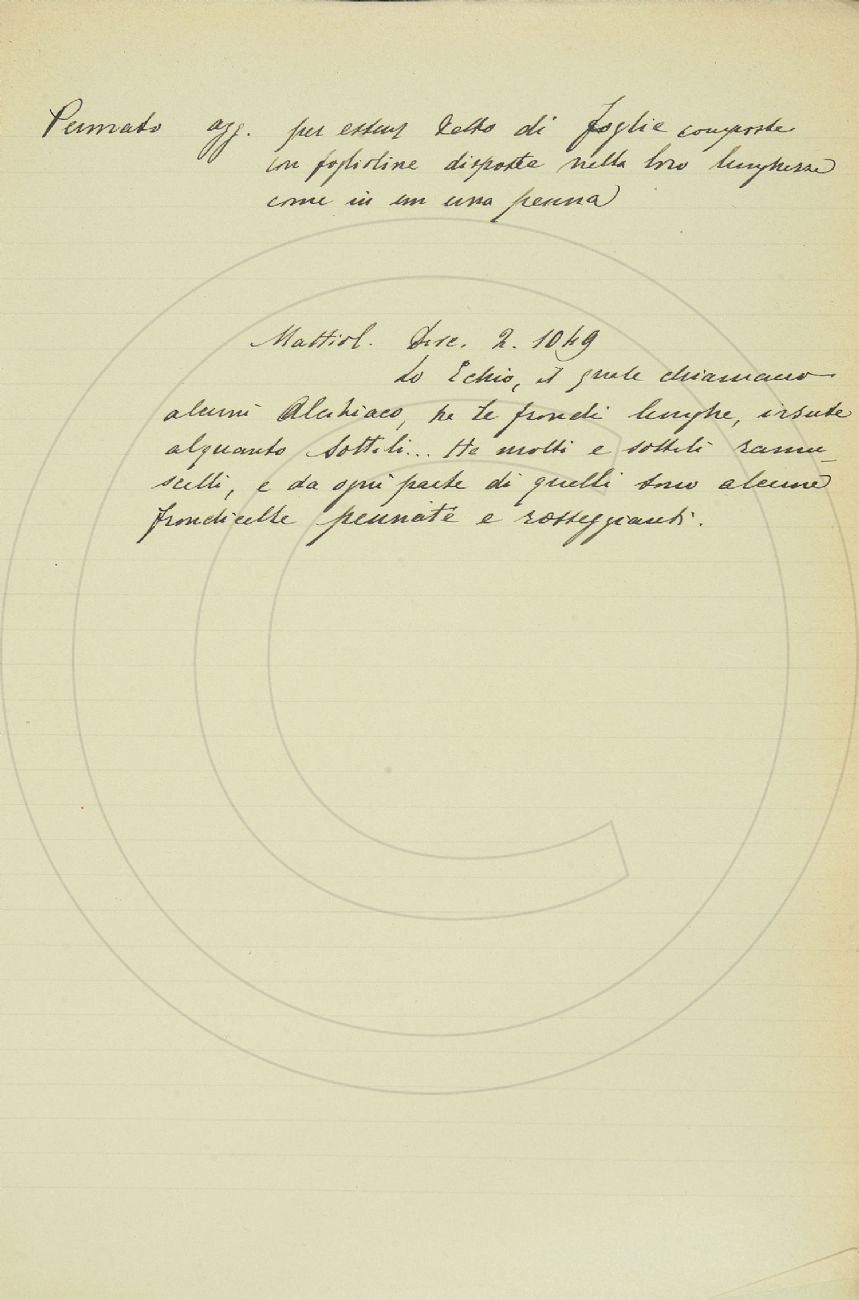 Pennato agg. per essere detto di foglie composte
con foglioline disposte nella loro lunghezza
come in un una penna
Mattiol. Disc. 2. 1049
Lo Echio, il quale chiamano
alcuni Alcibiaco, ha le frondi lunghe, irsute
alquanto sottili... Ha molti e sottili ramu-
scelli, e da ogni parte di quelli sono alcune
frondicelle pennate e rosseggianti.